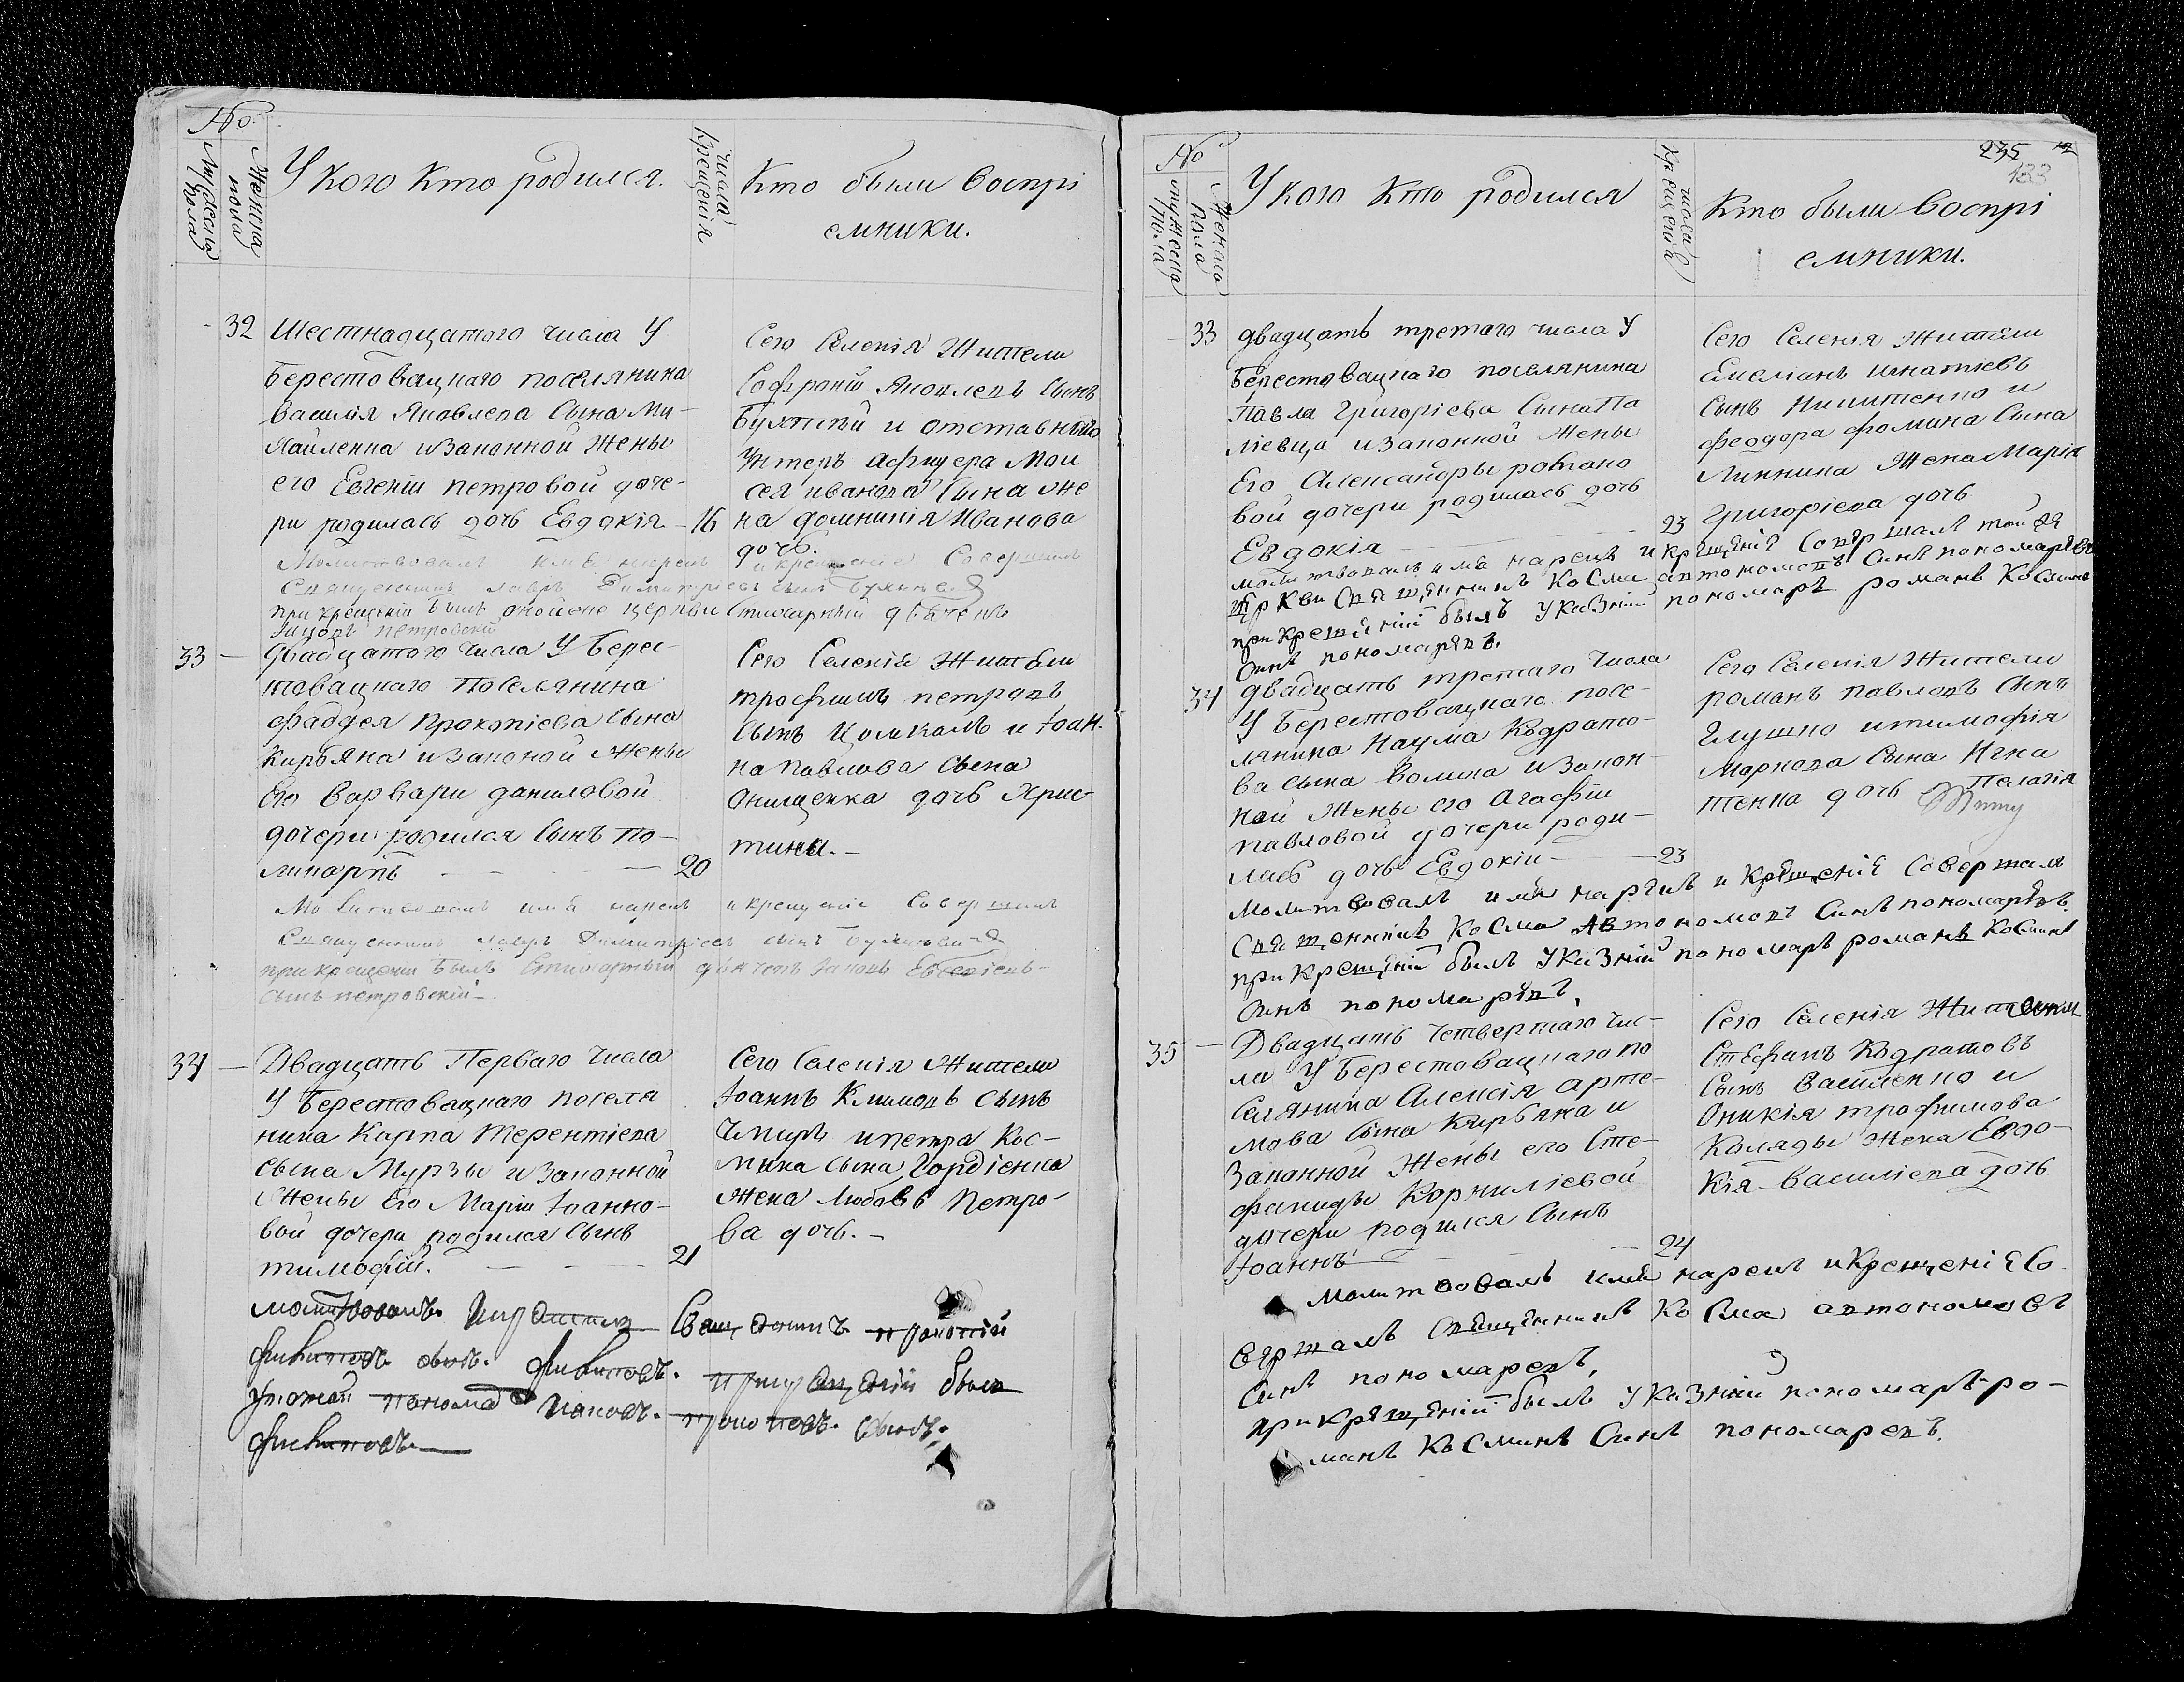 №
Мужеска пола
Женска пола
У кого кто родился.
Числа крещенія
Кто были воспрі
емники.
32
Шестнадцатого числа У
берестовацкаго поселянина
василія Яковлева сына Ми-
хайленка и законной жены
его Евгеніи петровой доче-
ри родилась дочь Евдокія - 16
Сего Селенія Жители
Софроній Яковлевъ сынъ
и отставнаго
Унтеръ афицера Мои
сея иванова сына же
на домникія Иванова
дочь.
Молитвовалъ имя нарекъ и крещеніе Совершилъ
Священникъ лавръ Димитріевъ сынъ
при крещеніи былъ оной же церкви Стихарный дьячекъ
петровскій
33
двадцатого числа У берес-
товацкаго Поселянина
фаддея Прокопіева сына
Кирьяка и законой жены
Его Варвари даниловой
дочери родился сынъ по-
ликарпъ - 20
Сего Селенія Жители
трофимъ петровъ
сынъ и Іоан-
на павлова сына
Онищенка дочь Хрис-
тина.-
Молитвовалъ имя нарекъ и крещеніе Совершилъ
Священникъ лавръ Димитріевъ сынъ
при крещеніи былъ Стихарный дьячекъ
сынъ петровскій.
34
Двадцать Перваго числа
У Берестовацкаго поселя
нина Карпа Терентіева
сына Мурзы и законной
жены Его Маріи Іоанно-
вой дочери родился сынъ
тимофій. 21
Сего Селенія Жители
Іоаннъ Климовъ сынъ
Чмиръ и петра Кос-
мина сына Гордіенка
жена любовь Петро-
ва дочь. -
молитвовалъ Священникъ прокопій
филиповъ сынъ филиповъ. при крещеніи былъ
понома сынъ
филиповъ
№
Мужеска пола
Женска пола
У кого кто родился
числа крещенія
Кто были воспрі
емники.
235
133
33
двадцать третаго числа У
берестовацкаго поселянина
Павла Григоріева сына Па
ліевца и законной жены
Его Александры романо
вой дочери родилась дочь
Евдокія 23
Сего Селенія жители
Емеліанъ игнатіевъ
сынъ Никитенко и
феодора фомина сына
Линника жена Марія
Григоріева дочь
молитвовалъ имя нарекъ и крященіе Совяршалъ той же
цяркви Священникъ Косма автономовъ Синъ пономаревъ
при крещеніи былъ указній пономаръ романъ Косминъ
Синъ пономаревъ.
34
двадцать третаго числа
У Берестовацкаго посе-
лянина Наума Кодрато-
ва сына Волика и закон-
ной жены его Агафіи
павловой дочери роди-
лась дочь Евдокіи 23
Сего Селенія жители
романъ павловъ сынъ
Глушко и тимофія
Маркова сына Игна
тенка дочь Пелагія
Молитвовалъ имя нарѣкъ и Крященіе Совершалъ
Священникъ Косма Автономовъ Синъ пономаревъ.
при Крещеніи былъ указній пономаръ романъ Косминъ
Синъ пономаревъ.
35
Двадцать четвертаго чис-
ла У Берестовацкаго по
селянина Алексія арте-
мова сына Кирьяка и
законной жены его Сте-
фаниды Корниліевой
дочери родился сынъ
Іоаннъ 24
Сего Селенія Жители
Стефанъ Кодратовъ
сынъ василенко и
Оникія трофимова
Коляды жена Евдо-
кія василіева дочь
Молитвовалъ имя нарекъ и Крещеніе Со
вяршалъ Священникъ Косма автономовъ
Синъ пономаревъ,
при крященіи былъ указній пономаръ ро-
манъ Косминъ Синъ пономаревъ.